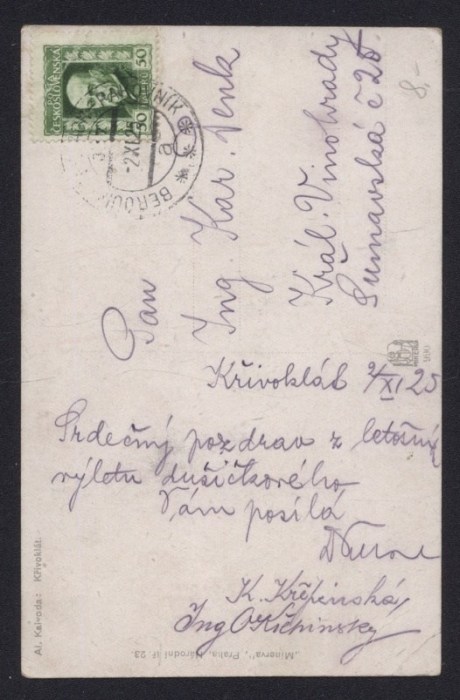 ČESKOSLOVENSKÁ
50 50
RAKOVNÍK
-2.XI.25
a
BEROUN
8,-
Pan
Ing. Kar. Venk
Král. Vinohrady
Šumavská č 25.
Křivoklát 2/XI 25
Srdečný pozdrav z letošního
výletu dušičkového
Vám posílá
K. Křepinská
Ing
Al. Kalvoda: Křivoklát.
„Minerva", Praha, Národní tř. 23.